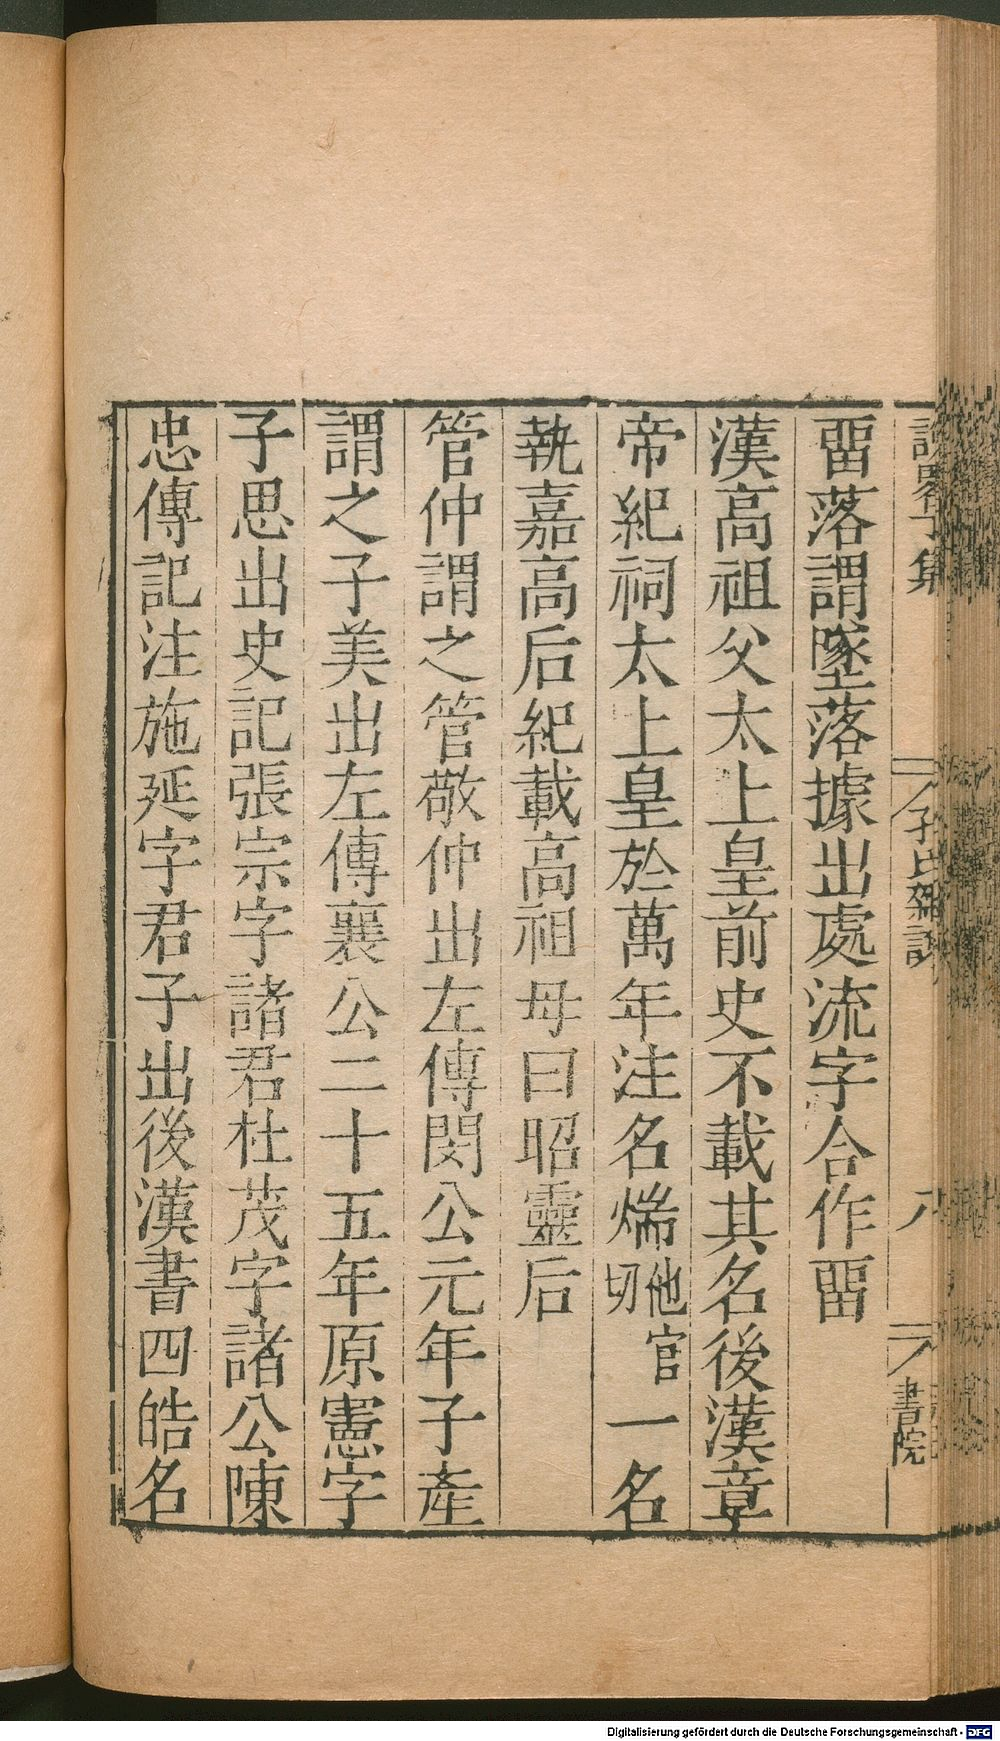 畱落謂墜落據出處流字合作畱
漢高祖父太上皇前史不載其名後漢章
帝紀祠太上皇於萬年注名煓他官切一名
執嘉高后紀載高祖母曰昭靈后
管仲謂之管敬仲出左傳閔公元年子產
謂之子美出左傳襄公二十五年原憲字
子思出史記張宗字諸君杜茂字諸公陳
忠傳記注施延字君子出後漢書四皓名
子集
子氏雜說
八
書院
Digitalisierung gefördert durch die Deutsche Forschungsgemeinschaft - DFG